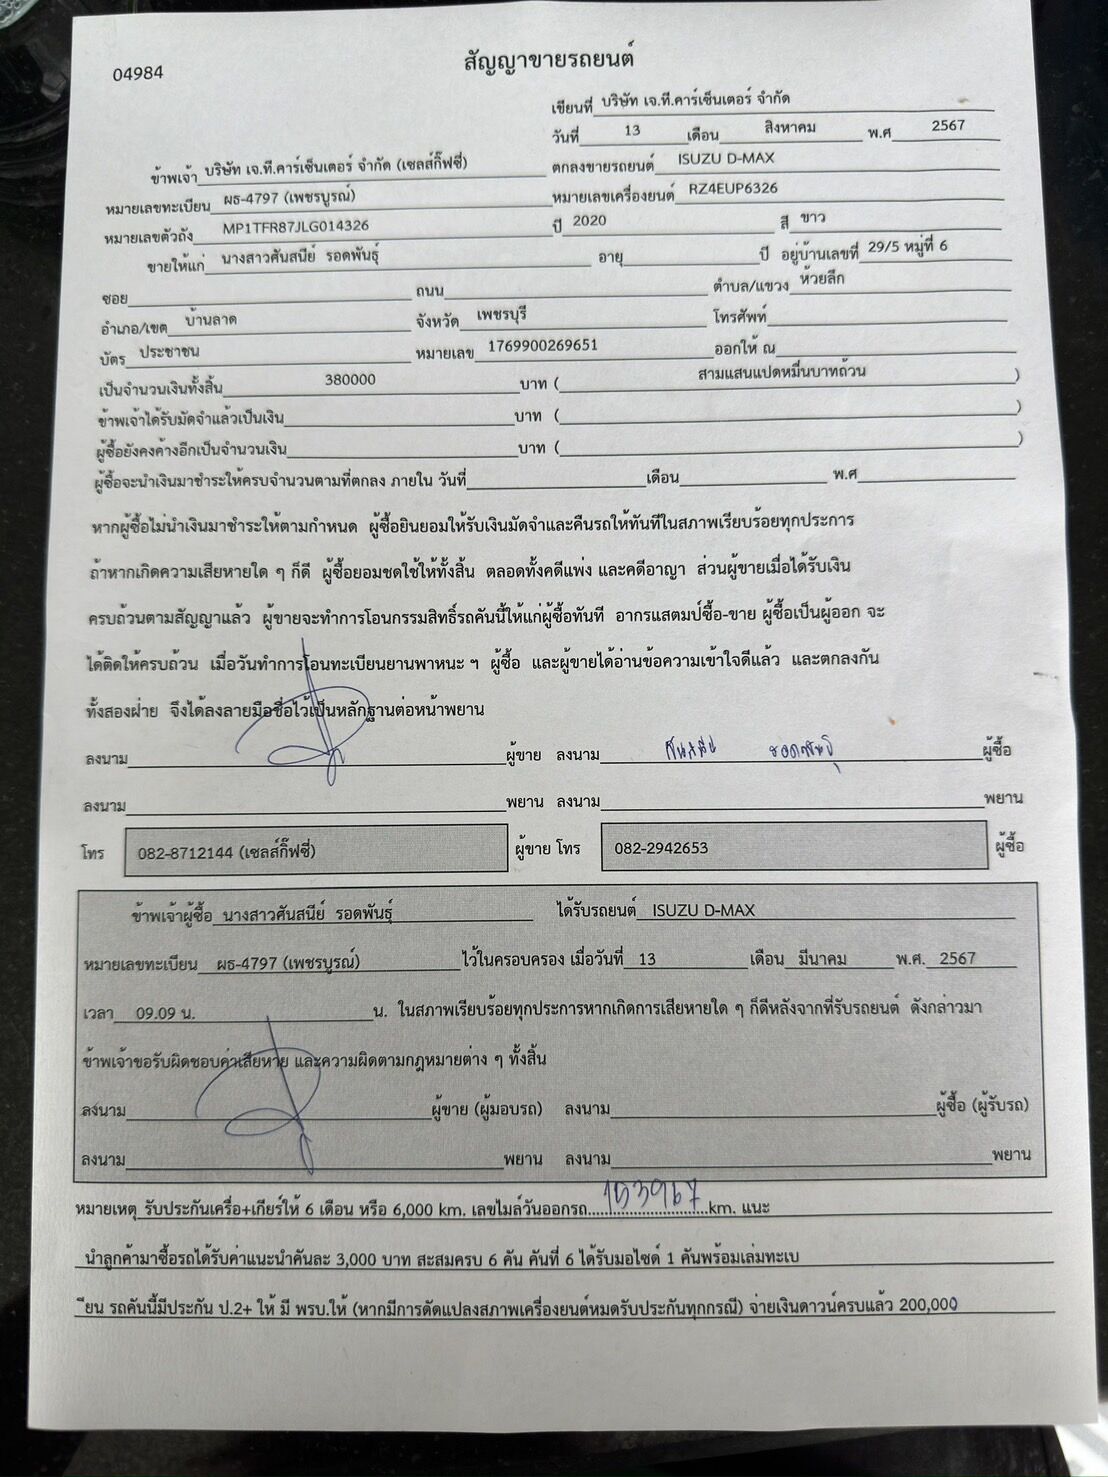 สัญญาขายรถยนต์
04984
เขียนที่ บริษัท เจ.ที.คาร์เซ็นเตอร์ จำกัด
วันที่ 13 เดือน สิงหาคม พ.ศ 2567
ข้าพเจ้า บริษัท เจ.ที.คาร์เซ็นเตอร์ จำกัด (เซลส์กิ๊ฟซี่) ตกลงขายรถยนต์ ISUZU D-MAX
หมายเลขทะเบียน ผธ-4797 (เพชรบูรณ์) หมายเลขเครื่องยนต์ RZ4EUP6326
หมายเลขตัวถัง MP1TFR87JLG014326 ปี 2020 สี ขาว
ขายให้แก่ นางสาวศันสนีย์ รอดพันธุ์ อายุ ปี อยู่บ้านเลขที่ 29/5 หมู่ที่ 6
ซอย ถนน ตำบล/แขวง ห้วยลึก
อำเภอ/เขต บ้านลาด จังหวัด เพชรบุรี โทรศัพท์
บัตร ประชาชน หมายเลข 1769900269651 ออกให้ ณ
เป็นจำนวนเงินทั้งสิ้น 380000 บาท ( สามแสนแปดหมื่นบาทถ้วน )
ข้าพเจ้าได้รับมัดจำแล้วเป็นเงิน บาท ( )
ผู้ซื้อยังคงค้างอีกเป็นจำนวนเงิน บาท ( )
ผู้ซื้อจะนำเงินมาชำระให้ครบจำนวนตามที่ตกลง ภายใน วันที่ เดือน พ.ศ
หากผู้ซื้อไม่นำเงินมาชำระให้ตามกำหนด ผู้ซื้อยินยอมให้รับเงินมัดจำและคืนรถให้ทันทีในสภาพเรียบร้อยทุกประการ
ถ้าหากเกิดความเสียหายใด ๆ ก็ดี ผู้ซื้อยอมชดใช้ให้ทั้งสิ้น ตลอดทั้งคดีแพ่ง และคดีอาญา ส่วนผู้ขายเมื่อได้รับเงิน
ครบถ้วนตามสัญญาแล้ว ผู้ขายจะทำการโอนกรรมสิทธิ์รถคันนี้ให้แก่ผู้ซื้อทันที อากรแสตมป์ซื้อ-ขาย ผู้ซื้อเป็นผู้ออก จะ
ได้ติดให้ครบถ้วน เมื่อวันทำการโอนทะเบียนยานพาหนะ ฯ ผู้ซื้อ และผู้ขายได้อ่านข้อความเข้าใจดีแล้ว และตกลงกัน
ทั้งสองฝ่าย จึงได้ลงลายมือชื่อไว้เป็นหลักฐานต่อหน้าพยาน
ลงนาม ผู้ขาย ลงนาม ศันสนีย์ รอดพันธุ์ ผู้ซื้อ
ลงนาม พยาน ลงนาม พยาน
โทร 082-8712144 (เซลส์กิ๊ฟซี่) ผู้ขาย โทร 082-2942653 ผู้ซื้อ
ข้าพเจ้าผู้ซื้อ นางสาวศันสนีย์ รอดพันธุ์ ได้รับรถยนต์ ISUZU D-MAX
หมายเลขทะเบียน ผธ-4797 (เพชรบูรณ์) ไว้ในครอบครอง เมื่อวันที่ 13 เดือน มีนาคม พ.ศ. 2567
เวลา 09.09 น. น. ในสภาพเรียบร้อยทุกประการหากเกิดการเสียหายใด ๆ ก็ดีหลังจากที่รับรถยนต์ ดังกล่าวมา
ข้าพเจ้าขอรับผิดชอบค่าเสียหาย และความผิดตามกฎหมายต่าง ๆ ทั้งสิ้น
ลงนาม ผู้ขาย (ผู้มอบรถ) ลงนาม ผู้ซื้อ (ผู้รับรถ)
ลงนาม พยาน ลงนาม พยาน
หมายเหตุ รับประกันเครื่อ+เกียร์ให้ 6 เดือน หรือ 6,000 km. เลขไมล์วันออกรถ...153967...km. แนะ
นำลูกค้ามาซื้อรถได้รับค่าแนะนำคันละ 3,000 บาท สะสมครบ 6 คัน คันที่ 6 ได้รับมอไซด์ 1 คันพร้อมเล่มทะเบ
ียน รถคันนี้มีประกัน ป.2+ ให้ มี พรบ.ให้ (หากมีการดัดแปลงสภาพเครื่องยนต์หมดรับประกันทุกกรณี) จ่ายเงินดาวน์ครบแล้ว 200,000